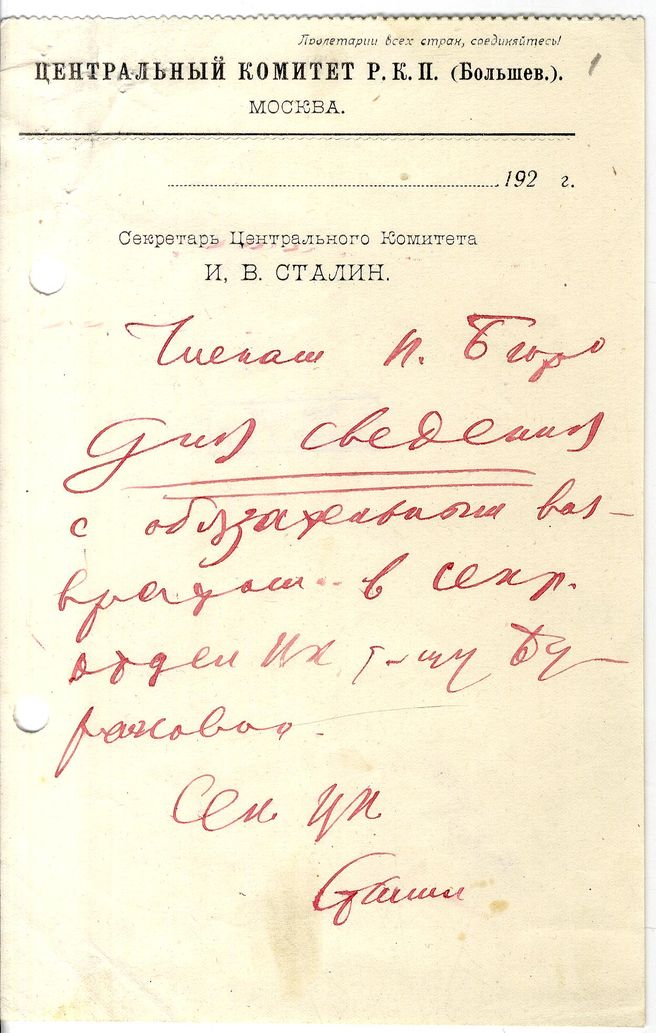 Пролетарии всех стран, соединяйтесь!
1
ЦЕНТРАЛЬНЫЙ КОМИТЕТ Р.К.П. (Большев.).
МОСКВА.
192 г.
Секретарь Центрального Комитета
И. В. СТАЛИН.
Членам П. Бюро
для сведения
с обязательным воз-
вратом в секр.
отдел ЦК
раковой.
Сек. ЦК
Сталин